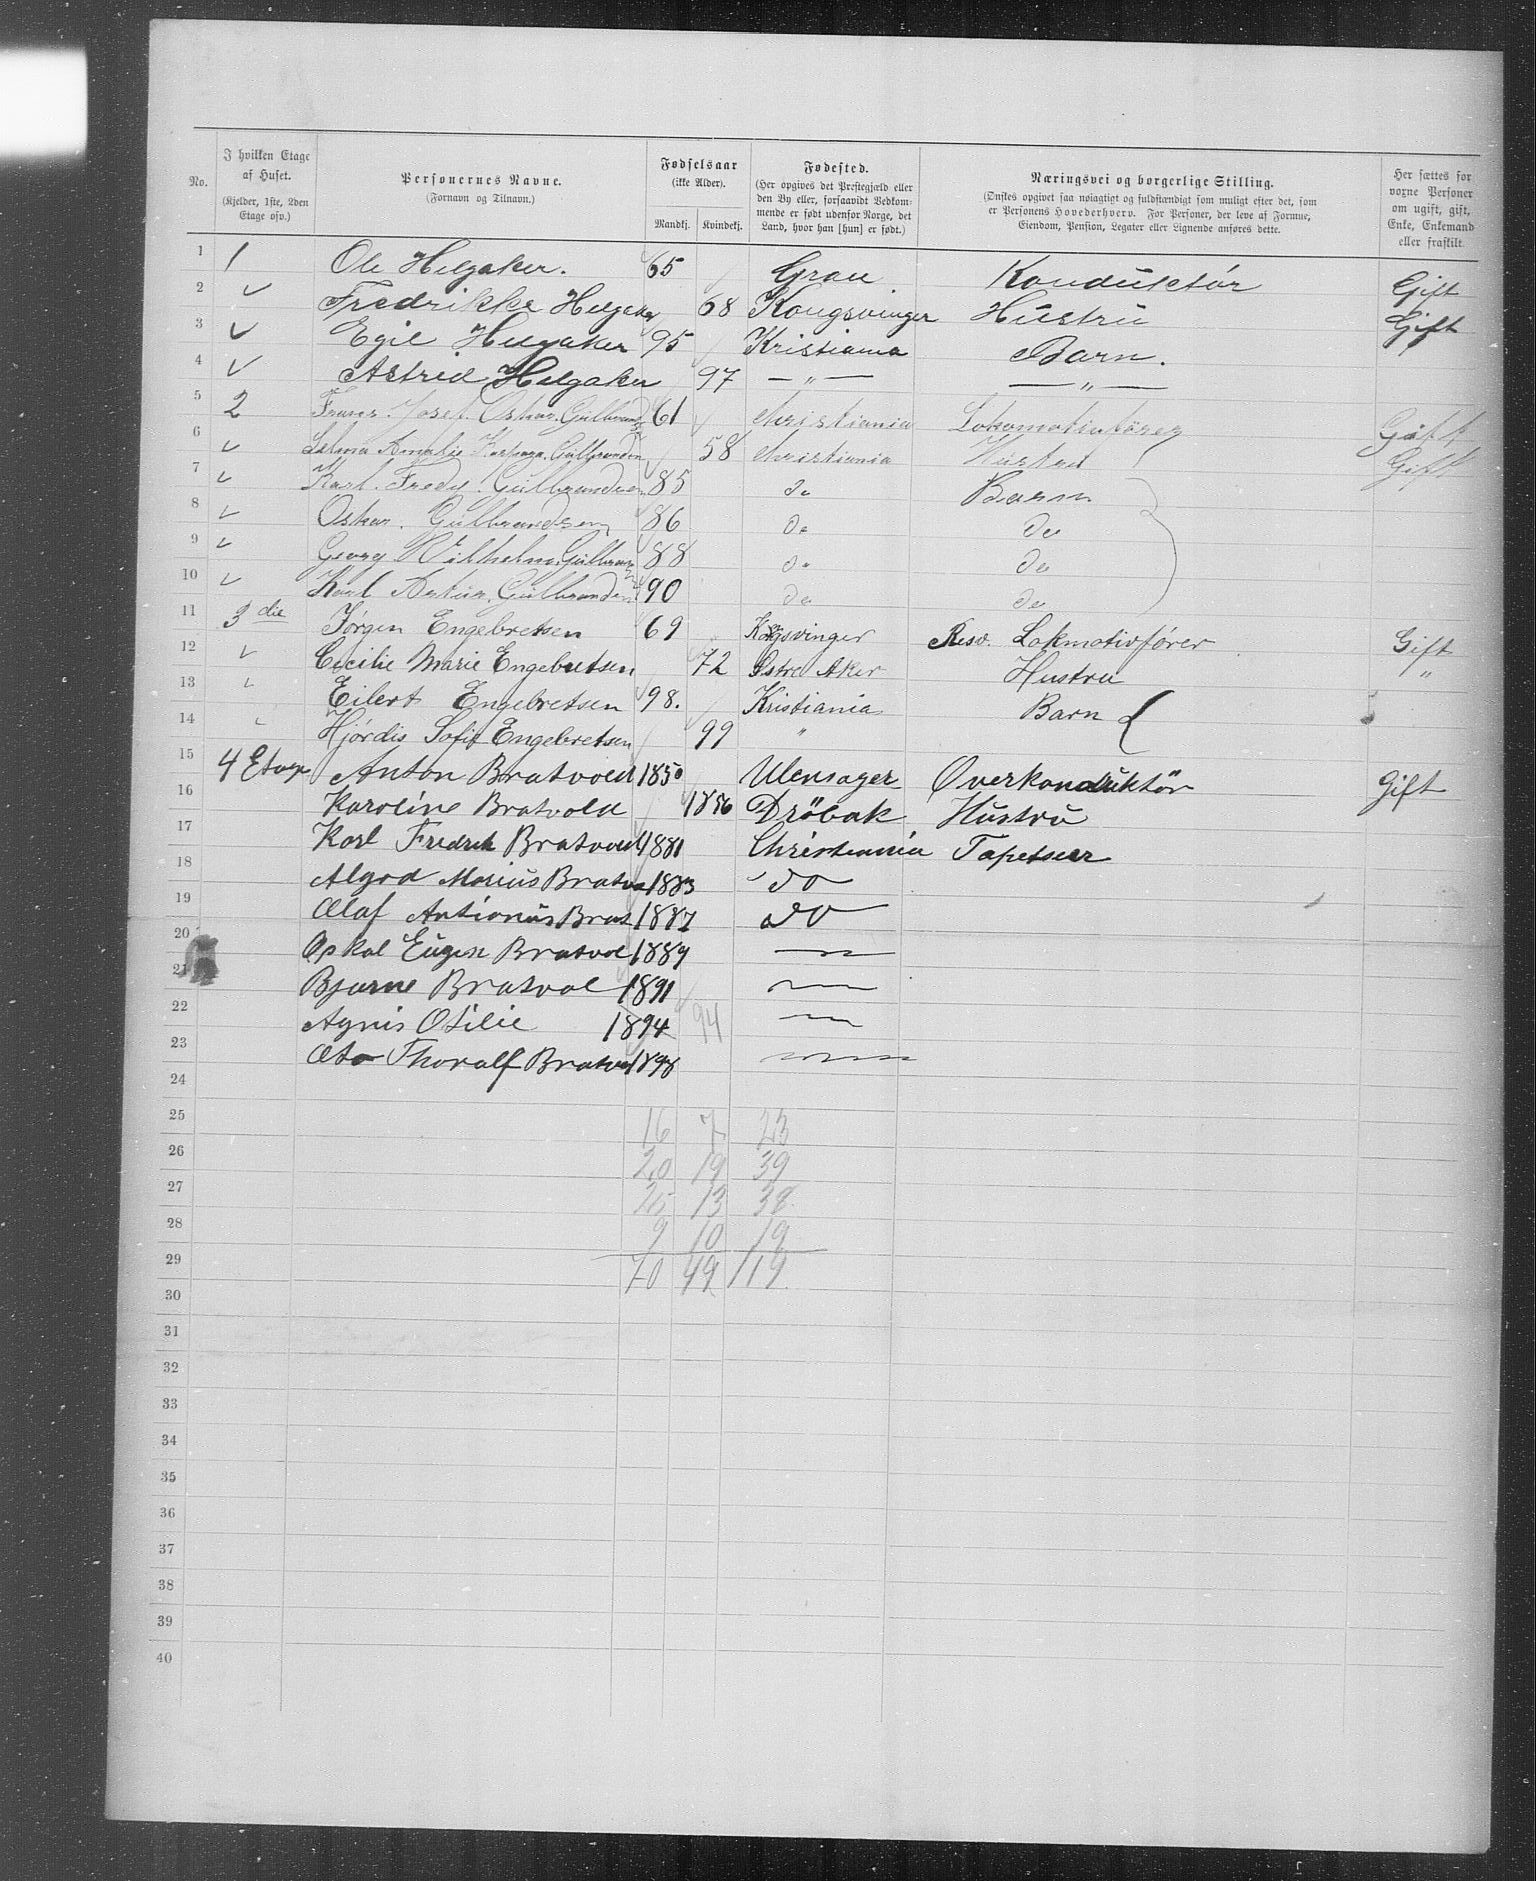 No. | I hvilken Etage af Huset. (Kjelder, 1ste, 2den Etage osv.) | Personernes Navne. (Fornavn og Tilnavn.) | Fødselsaar (ikke Alder). Mandkj. | Kvindekj. | Fødested. (Her opgives det Prestegjæld eller den By eller, forsaavidt Vedkommende er født udenfor Norge, det Land, hvor han [hun] er født.) | Næringsvei og borgerlige Stilling. (Ønskes opgivet saa nøiagtigt og fuldstændigt som muligt efter det, som er Personens Hovederhverv. For Personer, der leve af Formue, Eiendom, Pension, Legater eller Lignende anføres dette. | Her sættes for voxne Personer om ugift, gift, Enke, Enkemand eller fraskilt.
1 1 Ole Helgaker. 65 Gran Konduktør Gift
2 ✓ Fredrikke Helgaker 68 Kongsvinger Hustru Gift
3 ✓ Egil Helgaker 95 Kristiania Barn.
4 ✓ Astrid Helgaker 97 — " — — " —
5 2 Frans Josef Oskar Gulbrandsen 61 Christiania Lokomotivfører Gift
6 ✓ Amalie Gulbrandsen 58 Christiania Hustru Gift
7 ✓ Karl Fredy Gulbrandsen 85 do Barn
8 ✓ Oskar Gulbrandsen 86 do do
9 ✓ Georg Vilhelm Gulbrandsen 88 do do
10 ✓ Karl Artur Gulbrandsen 90 do do
11 3die Jørgen Engebretsen 69 Kongsvinger Resv. Lokmotivfører Gift
12 ✓ Cecilie Marie Engebretsen 72 Østre Aker Hustru "
13 ✓ Eilert Engebretsen 98. Kristiania Barn
14 ✓ Hjørdis Sofie Engebretsen 99 "
15 4 Etage Anton Bratvold 1850 Ulensager Overkonduktör Gift
16 Karoline Bratvold 1856 Dröbak Hustru
17 Karl Fredrik Bratvold 1881 Christiania Tapetserer
18 Marius Bratvo 1883 do
19 Olaf Antionus Brat 1887 do
20 Eugen Bratvol 1889 —
21 Bjarne Bratvol 1891 —
22 Agnis Otilie 1894 94 —
23 Thoralf Bratvo 1898 —
24
25 16 7 23
26 20 19 39
27 25 13 38
28 9 10 19
29 70 49 119
30
31
32
33
34
35
36
37
38
39
40